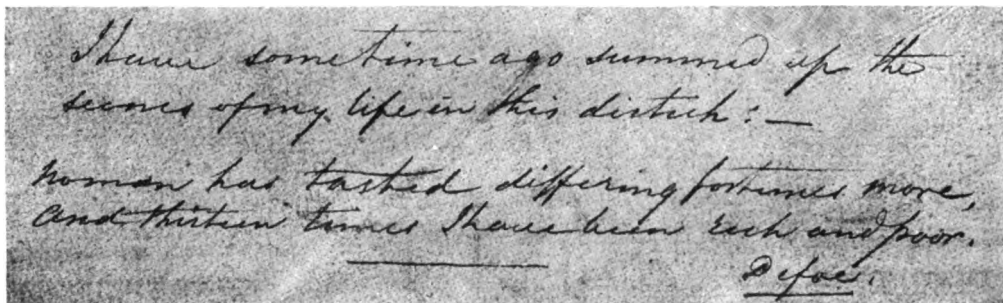 I have some time ago summed up the
scenes of my life in this distich: —
No man has tasted differing fortunes more,
and thirteen times I have been rich and poor.
Defoe.